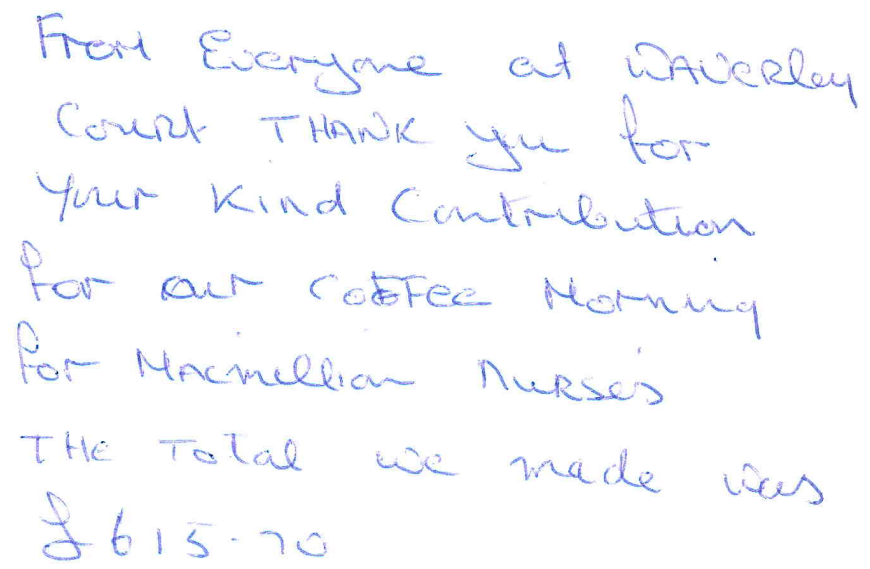 From Everyone at WAVERley
Court THANK you for
your Kind Contribution
for our CoFFee Morning
for Macmillian Nurses
THE Total we made was
£615-70